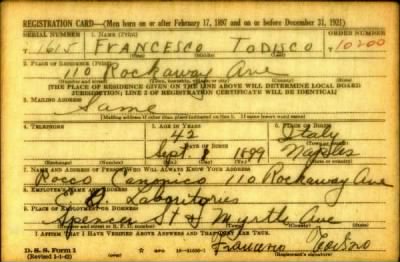 REGISTRATION CARD—(Men born on or after February 17, 1897 and on or before December 31, 1921)
SERIAL NUMBER 1. NAME (Print) ORDER NUMBER
T 1615 FRANCESCO TODISCO T 10200
2. PLACE OF RESIDENCE (Print)
110 Rockaway Ave
(Number and street) (Town, township, village or city) (County) (State)
[THE PLACE OF RESIDENCE GIVEN ON THE LINE ABOVE WILL DETERMINE LOCAL BOARD
JURISDICTION; LINE 2 OF REGISTRATION CERTIFICATE WILL BE IDENTICAL]
3. MAILING ADDRESS
Same
[Mailing address if other than place indicated on line 2. If same insert word same]
4. TELEPHONE 5. AGE IN YEARS 6. PLACE OF BIRTH
42 Italy
DATE OF BIRTH (Town or county)
Sept. 8 1899 Naples
(Exchange) (Number) (Mo.) (Day) (Yr.) (State or country)
7. NAME AND ADDRESS OF PERSON WHO WILL ALWAYS KNOW YOUR ADDRESS
Rocco Canonico 110 Rockaway Ave
8. EMPLOYER'S NAME AND ADDRESS
Laboritories
9. PLACE OF EMPLOYMENT OR BUSINESS
Spencer St & Myrtle Ave
(Number and street or R. F. D. number) (Town) (County) (State)
I AFFIRM THAT I HAVE VERIFIED ABOVE ANSWERS AND THAT THEY ARE TRUE.
D. S. S. Form 1
(Revised 1-1-42) (over) 16—21630-1 Francesco Todisco
(Registrant's signature)